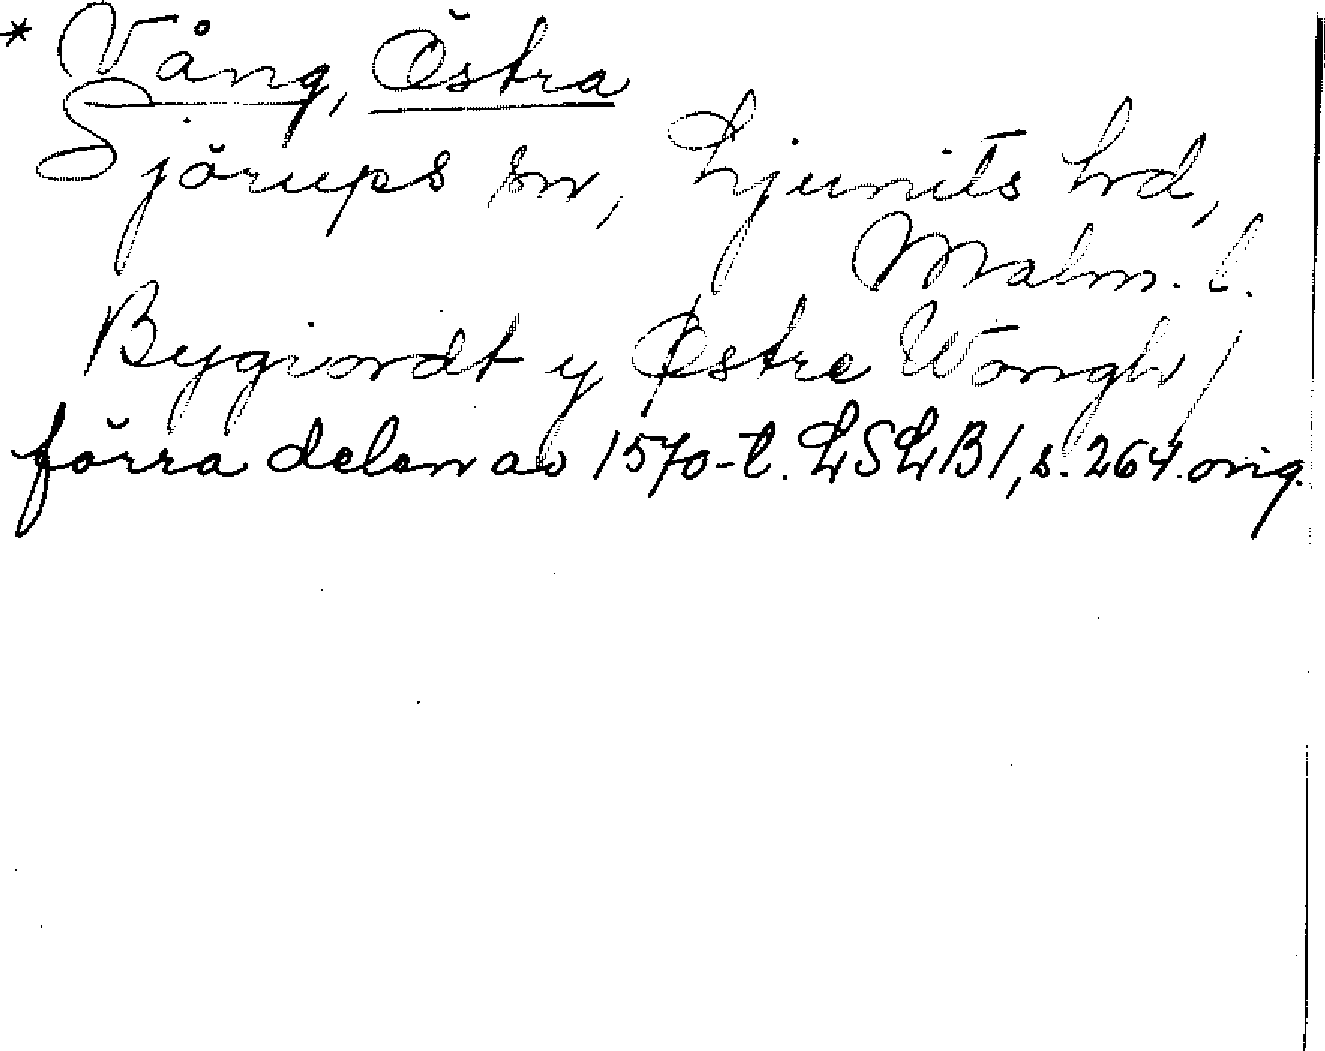 * Vång, Östra
Sjörups sn, Ljunits hd,
Malm. l.
Bygiordt y Østre Wongh /
förra delen av 1570-t. LSLB1, s. 264. orig.